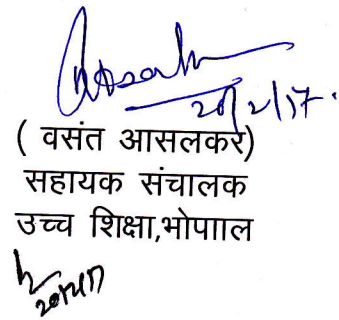 20/2/17.
( वसंत आसलकर)
सहायक संचालक
उच्च शिक्षा,भोपााल